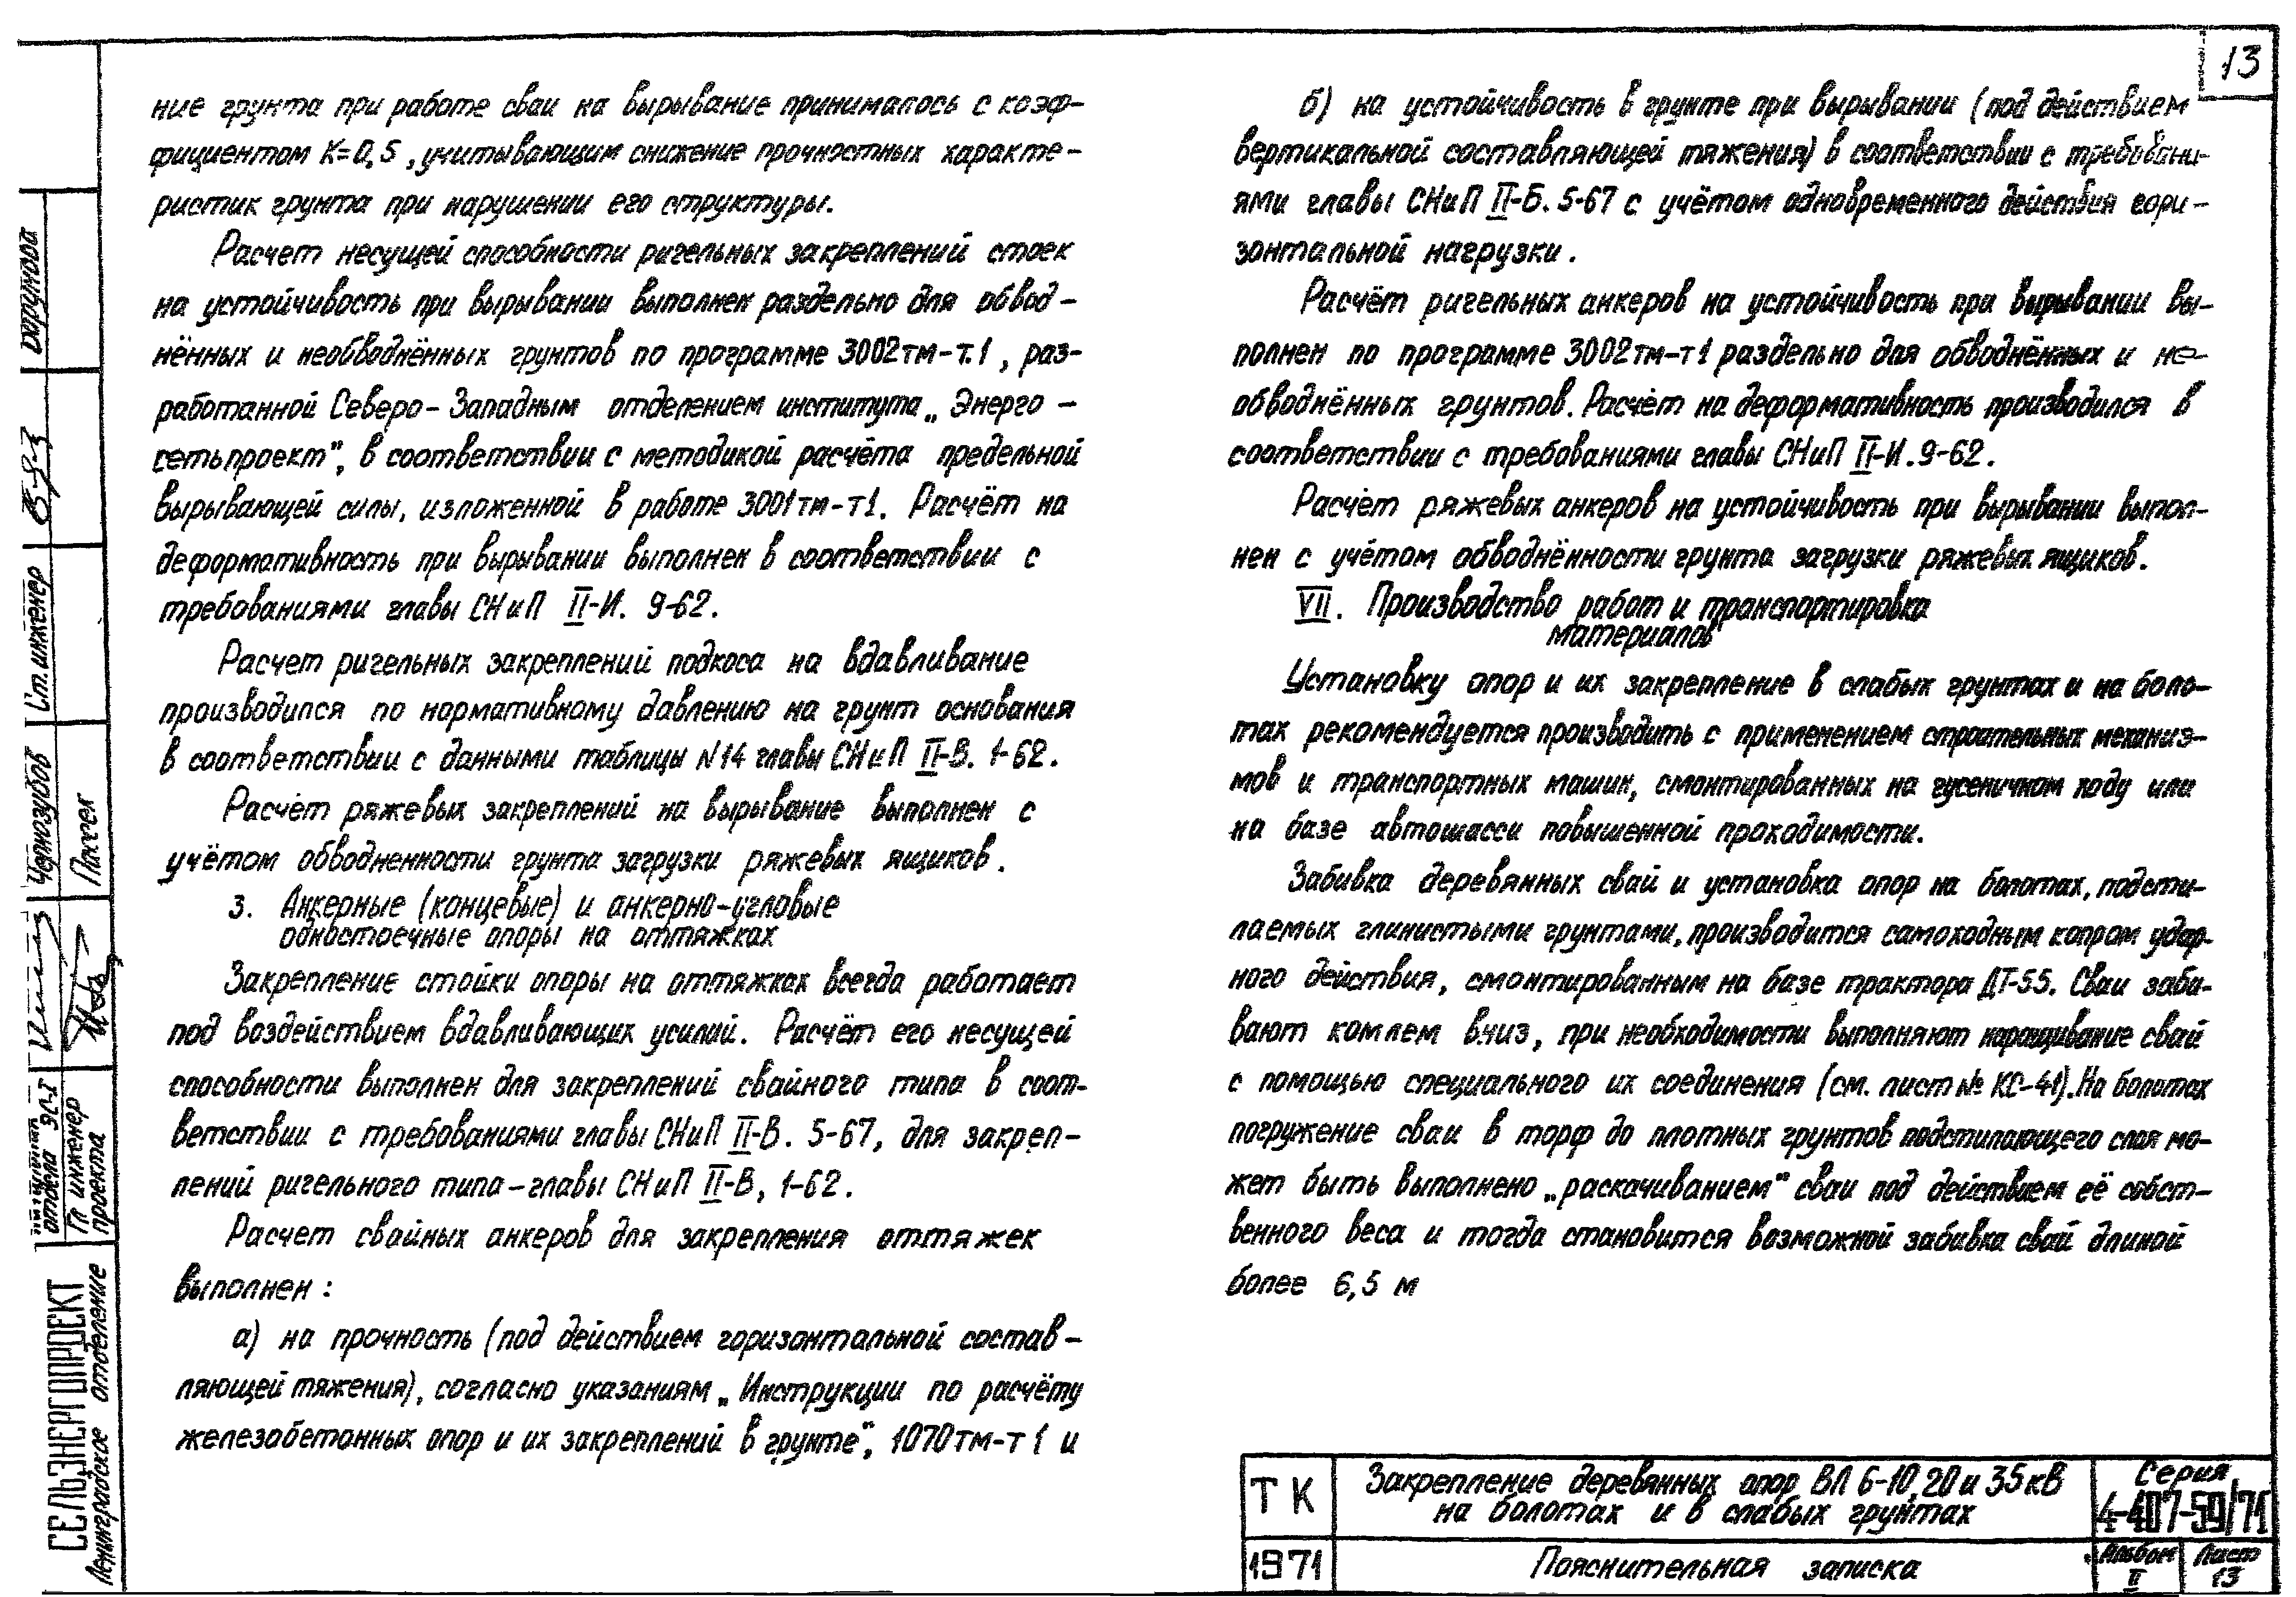 13
ние грунта при работе сваи на вырывание принималось с коэф-
фициентом К=0,5, учитывающим снижение прочностных характе-
ристик грунта при нарушении его структуры.
Расчет несущей способности ригельных закреплений стоек
на устойчивость при вырывании выполнен раздельно для обвод-
нённых и необводнённых грунтов по программе 3002тм-т.1, раз-
работанной Северо-Западным отделением института „Энерго-
сетьпроект", в соответствии с методикой расчёта предельной
вырывающей силы, изложенной в работе 3001тм-т1. Расчёт на
деформативность при вырывании выполнен в соответствии с
требованиями главы СНиП II-И. 9-62.
Расчет ригельных закреплений подкоса на вдавливание
производился по нормативному давлению на грунт основания
в соответствии с данными таблицы N14 главы СНиП II-В. 1-62.
Расчёт ряжевых закреплений на вырывание выполнен с
учётом обводненности грунта загрузки ряжевых ящиков.
3. Анкерные (концевые) и анкерно-угловые
одностоечные опоры на оттяжках
Закрепление стойки опоры на оттяжках всегда работает
под воздействием вдавливающих усилий. Расчёт его несущей
способности выполнен для закреплений свайного типа в соот-
ветствии с требованиями главы СНиП II-В. 5-67, для закреп-
лений ригельного типа-главы СНиП II-В, 1-62.
Расчет свайных анкеров для закрепления оттяжек
выполнен:
а) на прочность (под действием горизонтальной состав-
ляющей тяжения), согласно указаниям „Инструкции по расчёту
железобетонных опор и их закреплений в грунте", 1070тм-т1 и
б) на устойчивость в грунте при вырывании (под действием
вертикальной составляющей тяжения) в соответствии с требовани-
ями главы СНиП II-Б. 5-67 с учётом одновременного действия гори-
зонтальной нагрузки.
Расчёт ригельных анкеров на устойчивость при вырывании вы-
полнен по программе 3002тм-т1 раздельно для обводнённых и не-
обводнённых грунтов. Расчёт на деформативность производился в
соответствии с требованиями главы СНиП II-И.9-62.
Расчёт ряжевых анкеров на устойчивость при вырывании выпол-
нен с учётом обводнённости грунта загрузки ряжевых ящиков.
VII. Производство работ и транспортировка
материалов
Установку опор и их закрепление в слабых грунтах и на боло-
тах рекомендуется производить с применением строительных механиз-
мов и транспортных машин, смонтированных на гусеничном ходу или
на базе автошасси повышенной проходимости.
Забивка деревянных свай и установка опор на болотах, подсти-
лаемых глинистыми грунтами, производится самоходным копром удар-
ного действия, смонтированным на базе трактора ДТ-55. Сваи заби-
вают комлем вниз, при необходимости выполняют наращивание свай
с помощью специального их соединения (см. лист № КС-41). На болотах
погружение сваи в торф до плотных грунтов подстилающего слоя мо-
жет быть выполнено „раскачиванием" сваи под действием её собст-
венного веса и тогда становится возможной забивка свай длиной
более 6,5 м
СЕЛЬЭНЕРГОПРОЕКТ
Ленинградское отделение
отдела ЭС-1
Гл инженер
проекта
Чернозубов
Лаххел
Ст. инженер
ТК
Закрепление деревянных опор ВЛ 6-10, 20 и 35кВ
на болотах и в слабых грунтах
Серия
4-407-59/71
1971
Пояснительная записка
Альбом
II
Лист
13